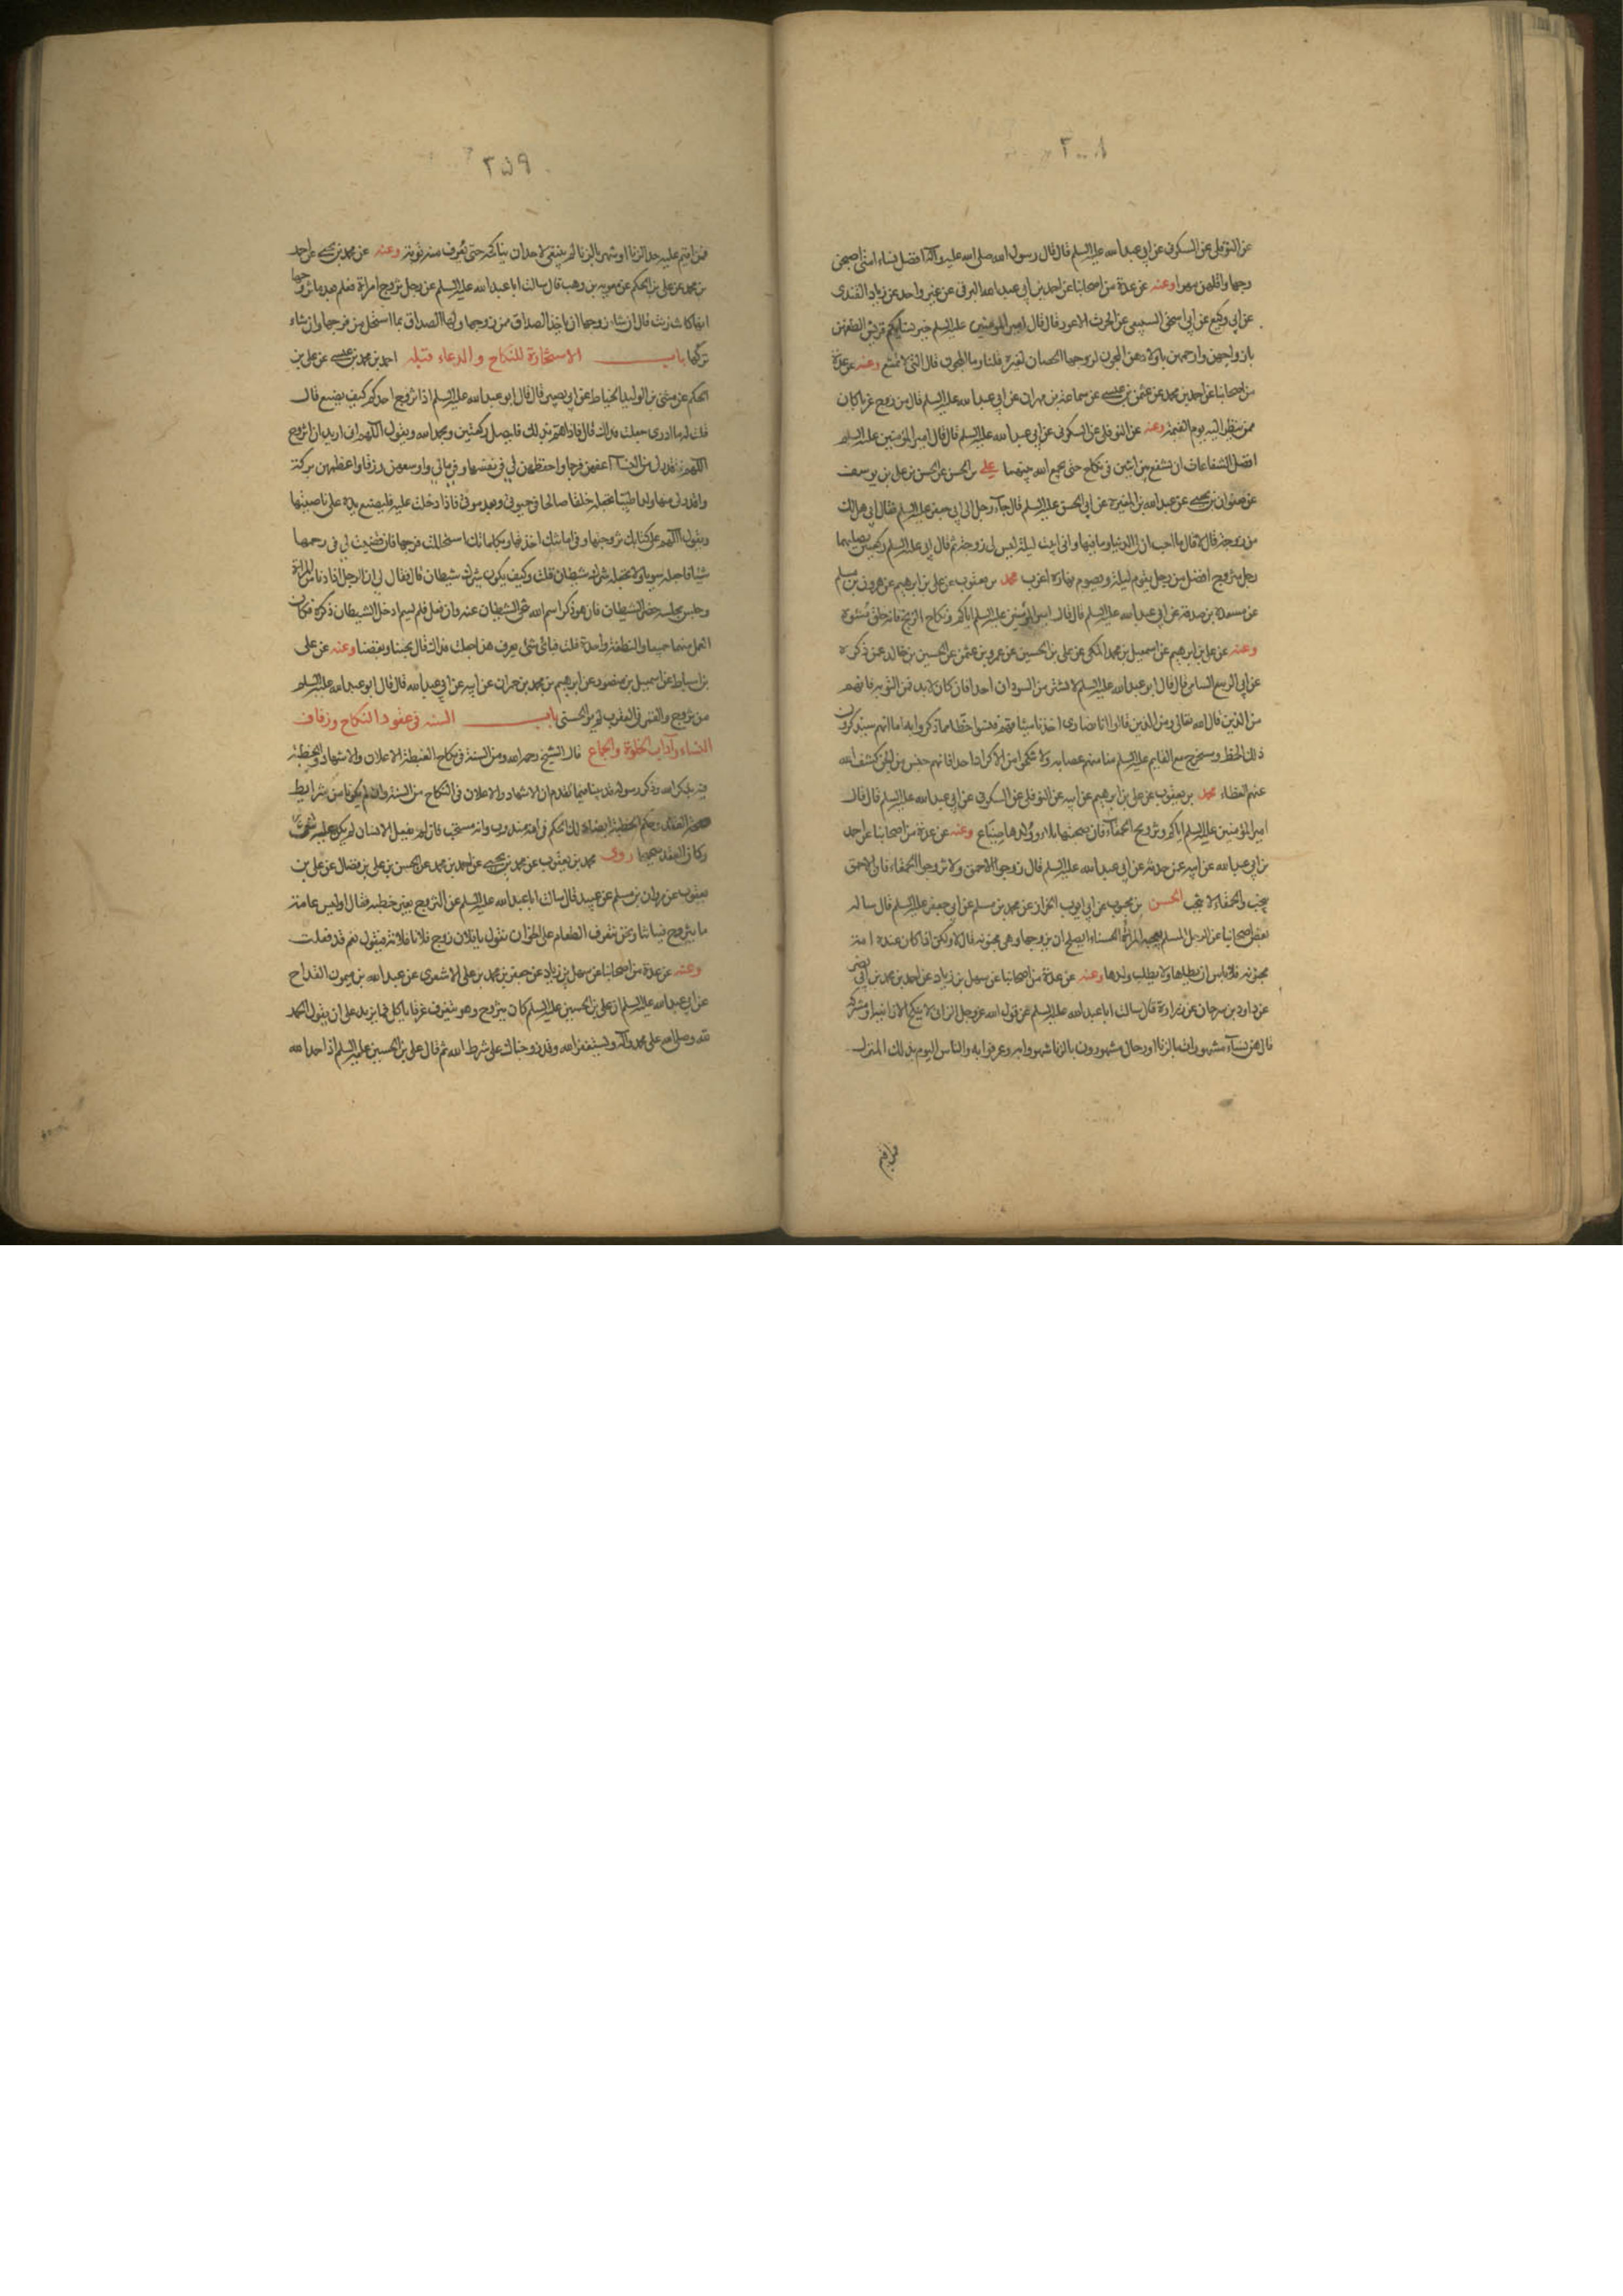 ٢٠٠٨
عن النوفلى عن السكونى عن ابى عبد الله عليه السلم قال قال رسول الله صلى الله عليه وآله افضل نساء امتى اصبحهن
وجها واقلهن مهرا وعنه عن عدة من اصحابنا عن احمد بن ابى عبد الله البرقى عن غير واحد عن زياد القندى
عن ابى وكيع عن ابى اسحق السبيعى عن الحرث الاعور قال قال امير المؤمنين عليه السلم خير نسائكم قريش الطفهن
بازواجهن وارحمهن باولادهن المجون لزوجها الحصان لغيره قلنا وما المجون قال التى لا تمنع وعنه عن عدة
من اصحابنا عن احمد بن محمد عن عثمن بن عيسى عن سماعة بن مهران عن ابى عبد الله عليه السلم قال من زوج عزبا كان
ممن ينظر اليه يوم القيمة وعنه عن النوفلى عن السكونى عن ابى عبد الله عليه السلم قال قال امير المؤمنين عليه السلم
افضل الشفاعات ان تشفع بين اثنين فى نكاح حتى يجمع الله بينهما على بن الحسن عن الحسن بن على بن يوسف
عن صفوان بن يحيى عن عبد الله بن المغيرة عن ابى الحسن عليه السلم قال جاء رجل الى ابى جعفر عليه السلم فقال ابى هل لك
من زوجة قال لا قال ما احب ان لى الدنيا وما فيها وانى ابيت ليلة ليس لى زوجة ثم قال ابى عليه السلم ركعتين يصليهما
رجل متزوج افضل من رجل يقوم ليلة ويصوم نهاره اعزب محمد بن يعقوب عن على بن ابرهيم عن هرون بن مسلم
عن مسعدة بن صدقة عن ابى عبد الله عليه السلم قال قال امير المؤمنين عليه السلم اياكم ونكاح الزنج فانه خلق مشوه
وعنه عن على بن ابرهيم عن اسمعيل بن محمد المكى عن على بن الحسين عن عمرو بن عثمن عن الحسين بن خالد عمن ذكره
عن ابى الربيع الشامى قال قال ابو عبد الله عليه السلم لا تشتر من السودان احدا فان كان لا بد فمن النوبه فانهم
من الذين قال الله تعالى ومن الذين قالوا انا نصارى اخذنا ميثاقهم فنسوا حظا مما ذكروا به اما انهم سيذكرون
ذلك الحظ وسيخرج مع القايم عليه السلم منا منهم عصابه ولا تنكحوا من الاكراد احدا فانهم جنس من الجن كشف الله
عنهم الغطاء محمد بن يعقوب عن على بن ابرهيم عن ابيه عن النوفلى عن السكونى عن ابى عبد الله عليه السلم قال قال
امير المؤمنين عليه السلم اياكم وتزويج الحمقاء فان صحبتها بلاء وولدها ضياع وعنه عن عدة من اصحابنا عن احمد
بن ابى عبد الله عن ابيه عمن حدثه عن ابى عبد الله عليه السلم قال زوجوا الاحمق ولا تزوجوا الحمقاء فان الاحمق
ينجب والحمقاء لا تنجب الحسن بن محبوب عن ابى ايوب الخزاز عن محمد بن مسلم عن ابى جعفر عليه السلم قال ساله
بعض اصحابنا عن الرجل المسلم يعجبه المرأة الحسناء ايصلح ان يزوجها وهى مجنونه قال لا ولكن اذا كان عنده امة
مجنونه فلا باس ان يطاها ولا يطلب ولدها وعنه عن عدة من اصحابنا عن سهل بن زياد عن احمد بن محمد بن ابى نصر
عن داود بن سرحان عن زرارة قال سالت ابا عبد الله عليه السلم عن قول الله عز وجل الزانى لا ينكح الا زانية او مشركة
قال هن نساء مشهورات بالزنا ورجال مشهورون بالزنا شهروا به وعرفوا به والناس اليوم بذلك المنزل
فمن اقيم
٢٥٩
فمن اقيم عليه حد الزنا او شهر بالزنا لم ينبغى لاحد ان يناكحه حتى يعرف منه توبة وعنه عن محمد بن يحيى عن احمد
بن محمد عن على بن الحكم عن معوية بن وهب قال سالت ابا عبد الله عليه السلم عن رجل تزوج امراة فعلم بعد ما تزوجها
انها كانت زنت قال ان شاء زوجها ان ياخذ الصداق ممن زوجها ولها الصداق بما استحل من فرجها وان شاء
تركها باب الاستخارة للنكاح والدعاء قبله احمد بن محمد بن عيسى عن على بن
الحكم عن مثنى بن الوليد الحناط عن ابى بصير قال قال ابو عبد الله عليه السلم اذا تزوج احدكم كيف يصنع قال
قلت له ما ادرى جعلت فداك قال فاذا هم بذلك فليصل ركعتين ويحمد الله ويقول اللهم انى اريد ان اتزوج
اللهم فقدر لى من النساء اعفهن فرجا واحفظهن لى فى نفسها وفى مالى واوسعهن رزقا واعظمهن بركة
واقدر لى منها ولدا طيبا تجعله خلفا صالحا فى حيوتى وبعد موتى فاذا دخلت عليه فليضع يده على ناصيتها
ويقول اللهم على كتابك تزوجتها وفى امانتك اخذتها وبكلماتك استحللت فرجها فان قضيت لى فى رحمها
شيئا فاجعله سويا ولا تجعله شرك شيطان قلت وكيف يكون شرك شيطان قال فقال لى ان الرجل اذا دنا من المراة
وجلس مجلسه حضر الشيطان فان هو ذكر اسم الله تنحى الشيطان عنه وان فعل فلم يسم ادخل الشيطان ذكره فكان
العمل منهما جميعا والنطفة واحدة قلت فباى شى يعرف هذا جعلت فداك قال بحبنا وبغضنا وعنه عن على
بن اسباط عن اسمعيل بن منصور عن ابرهيم بن محمد بن حمران عن ابيه عن ابى عبد الله قال قال ابو عبد الله عليه السلم
من تزوج والقمر فى العقرب لم ير الحسنى باب السنة فى عقود النكاح وزفاف
النساء وآداب الخلوة والجماع قال الشيخ رحمه الله ومن السنة فى نكاح الغبطة الاعلان والاشهاد والخطبة
فيه بذكر الله وذكر رسوله قد بينا فيما تقدم ان الاشهاد والاعلان فى النكاح من السنة وان لم يكونا من شرايط
صحة العقد وحكم الخطبة ايضا ذلك الحكم فى انه مندوب وانه مستحب فان لم يفعل الانسان لم يكن عليه شى
وكان العقد صحيحا روى محمد بن يعقوب عن محمد بن يحيى عن احمد بن محمد عن الحسن بن على بن فضال عن على بن
يعقوب عن مروان بن مسلم عن عبيد قال سالت ابا عبد الله عليه السلم عن التزوج بغير خطبة فقال اوليس عامة
ما يتزوج فتياتنا ونحن نتعرق الطعام على الخوان نقول يا فلان زوج فلانا فلانة فيقول نعم قد فعلت
وعنه عن عدة من اصحابنا عن سهل بن زياد عن جعفر بن محمد بن على الاشعرى عن عبد الله بن ميمون القداح
عن ابى عبد الله عليه السلم ان على بن الحسين عليه السلم كان يتزوج وهو يتعرق عرقا ياكل فما يزيد على ان يقول الحمد
لله وصلى الله على محمد وآله ونستغفر الله وقد زوجناك على شرط الله ثم قال على بن الحسين عليه السلم اذا حمد الله